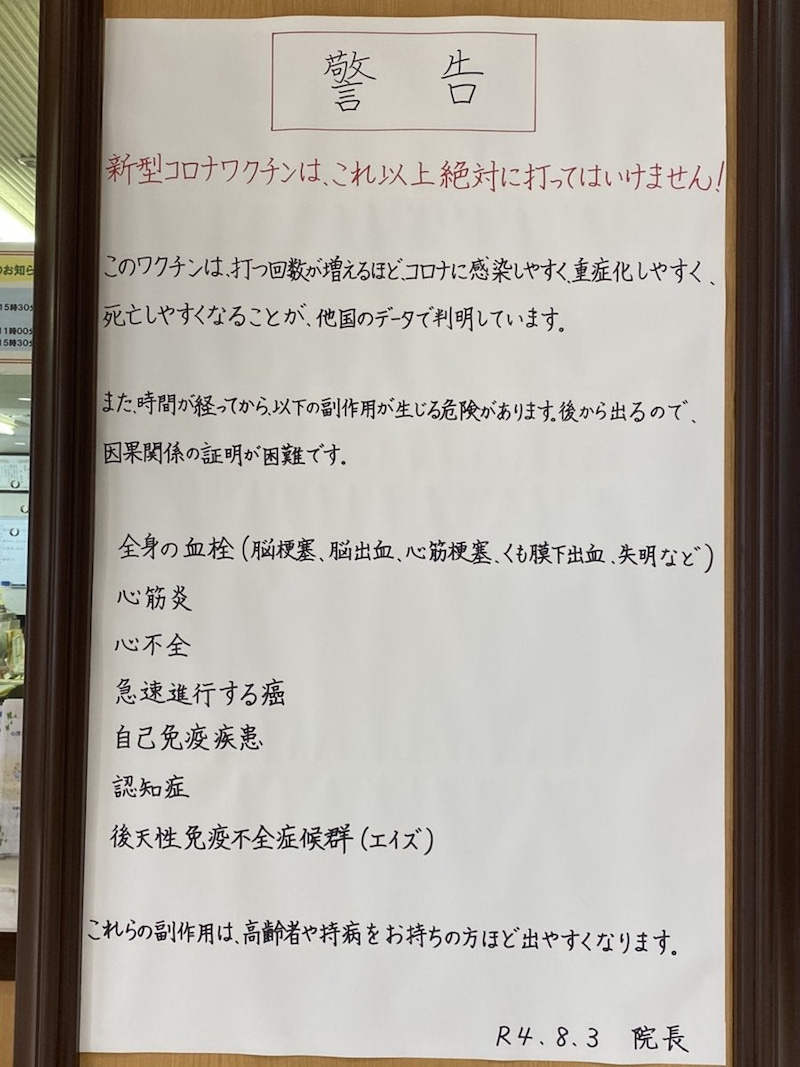 警告
新型コロナワクチンは、これ以上絶対に打ってはいけません!
このワクチンは、打つ回数が増えるほど、コロナに感染しやすく、重症化しやすく、
死亡しやすくなることが、他国のデータで判明しています。
また、時間が経ってから、以下の副作用が生じる危険があります。後から出るので、
因果関係の証明が困難です。
全身の血栓(脳梗塞、脳出血、心筋梗塞、くも膜下出血、失明など)
心筋炎
心不全
急速進行する癌
自己免疫疾患
認知症
後天性免疫不全症候群(エイズ)
これらの副作用は、高齢者や持病をお持ちの方ほど出やすくなります。
R4.8.3 院長
のお知ら
15時30分
11時00分
15時30分